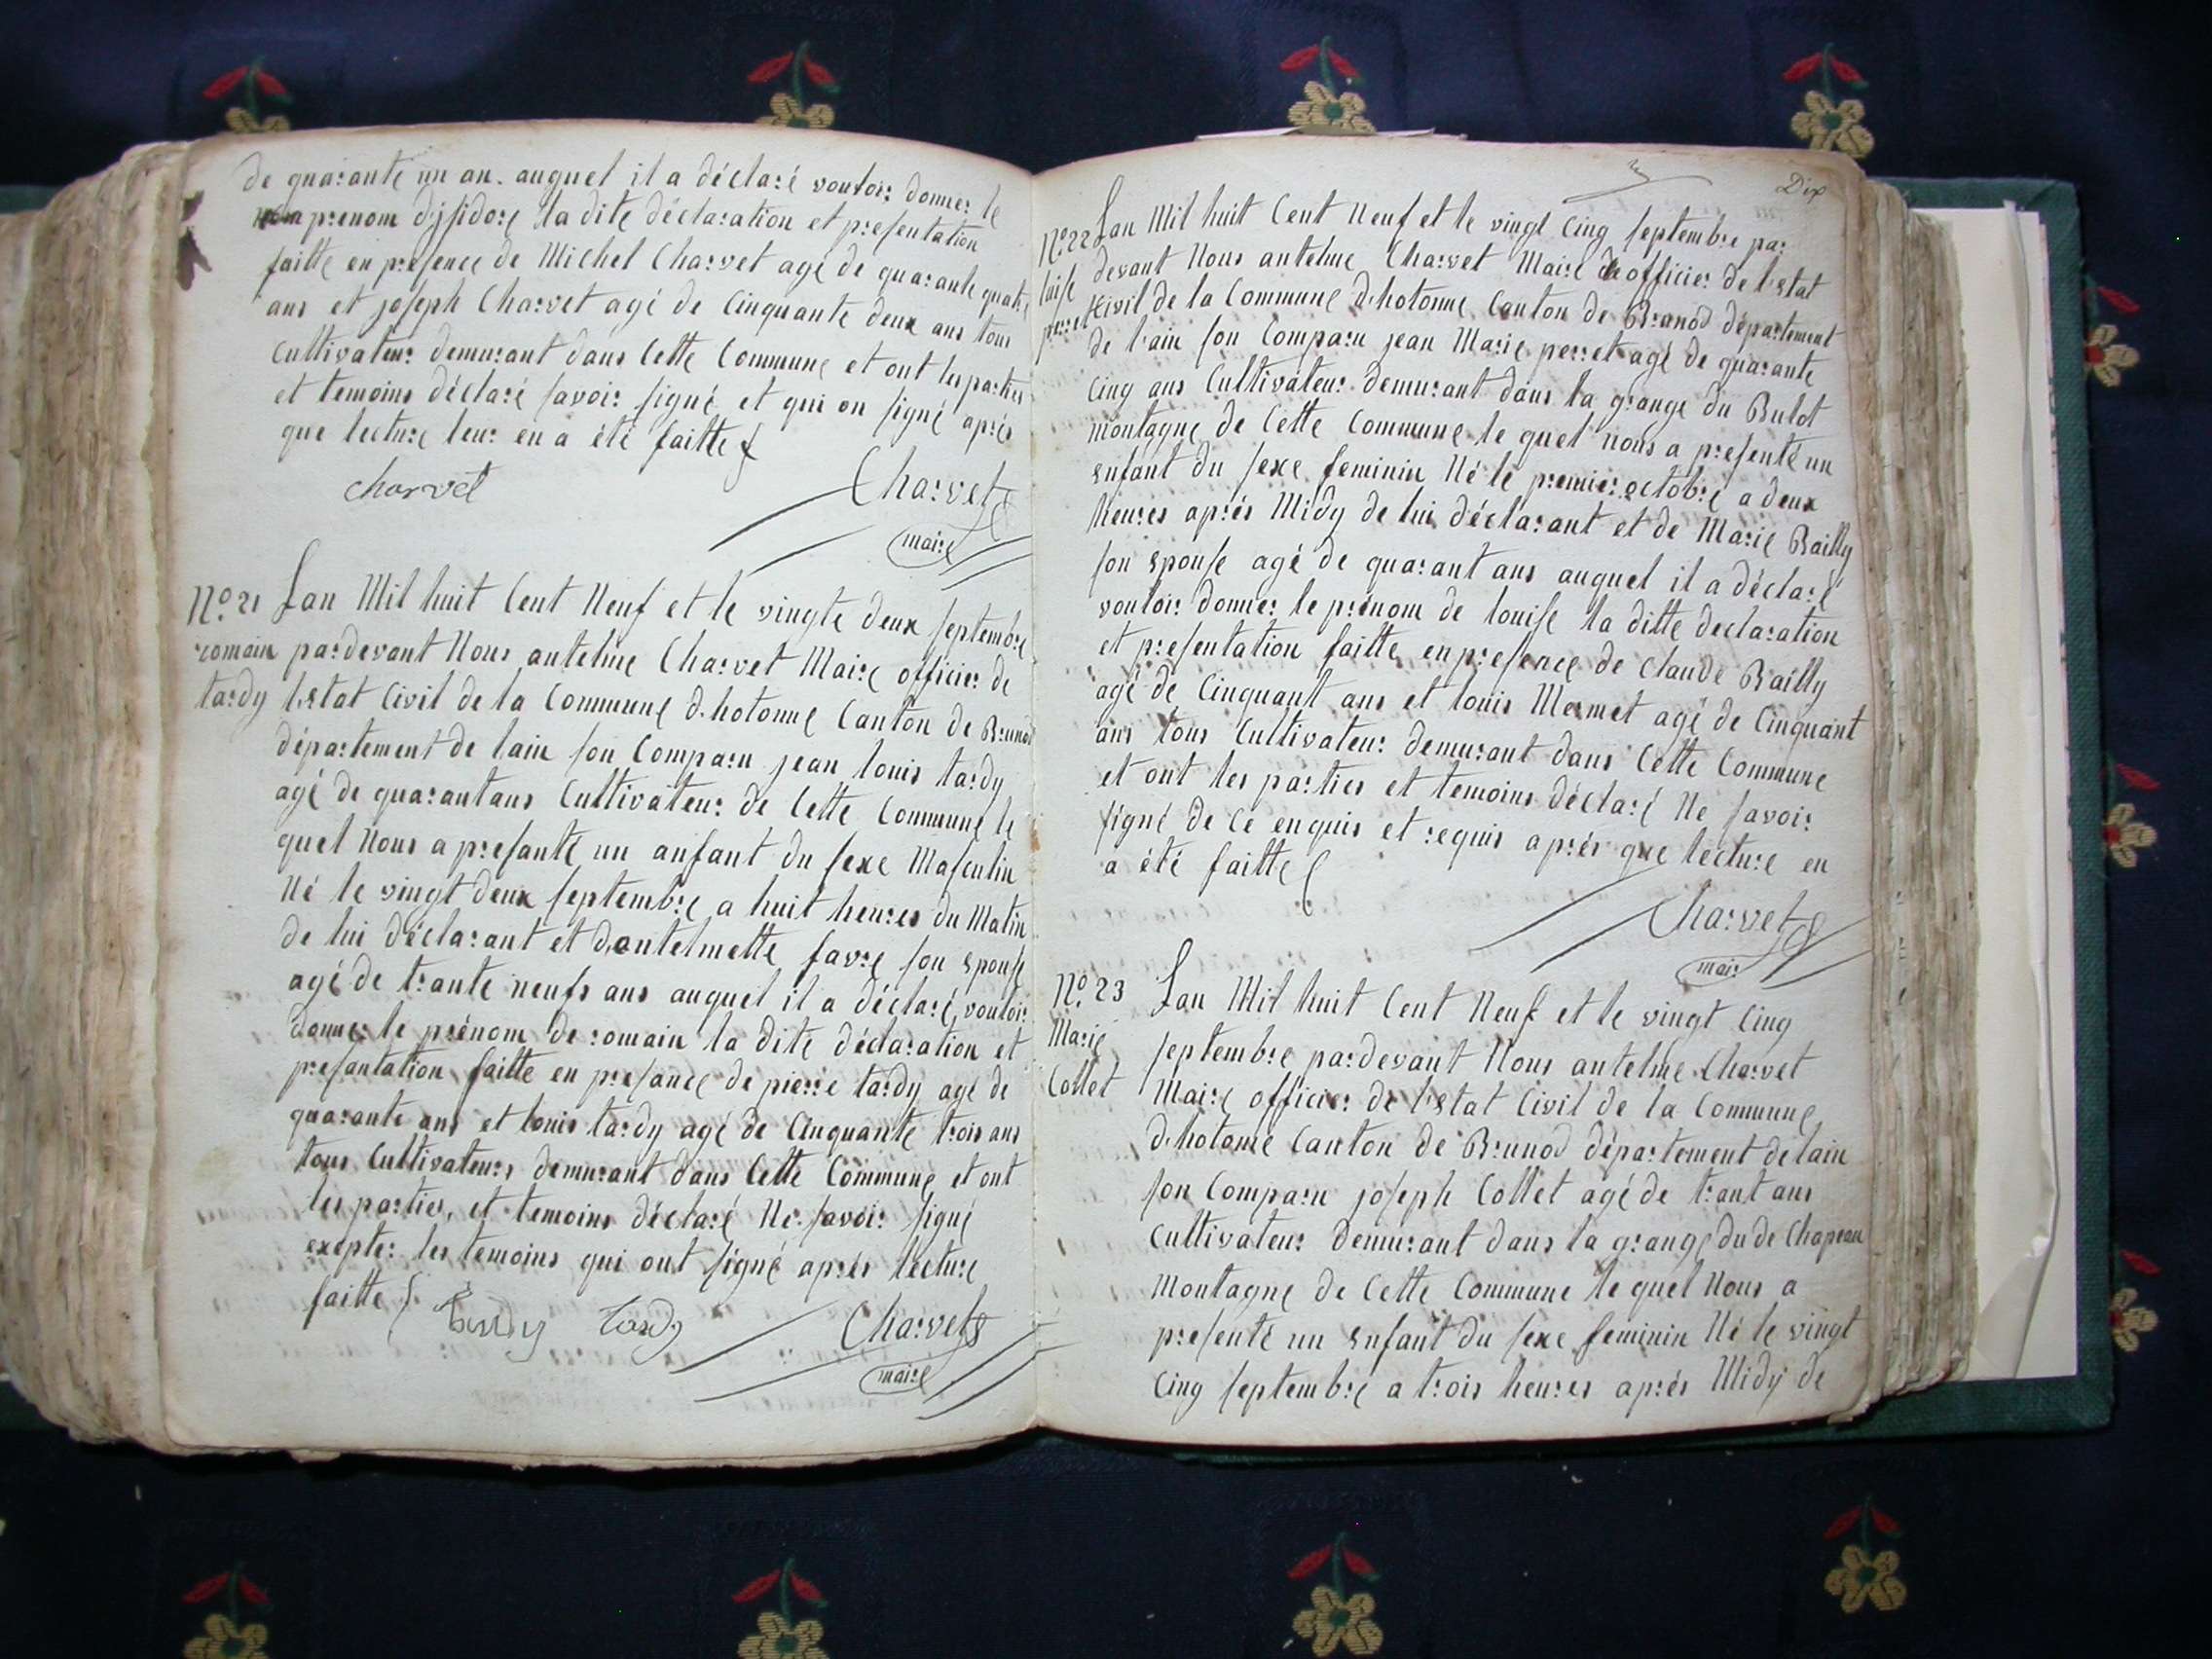 de quarante un an. auquel il a déclaré vouloir donner le
prenom d'jsidore la dite déclaration et presentation
faitte en presence de Michel Charvet agé de quarante quatre
ans et joseph Charvet agé de Cinquante deux ans tous
Cultivateur demurant dans Cette Commune et ont les parties
et temoins déclaré savoir signé et qui on signé aprés
que lecture leur en a été faitte
charvet
Charvet
maire
N.o 21
romain
tardy
Lan Mil huit Cent Neuf et le vingte deux septembre
pardevant Nous antelme Charvet Maire officier de
lestat Civil de la Commune d.hotonne Canton de Brunod
département de lain son Comparu jean louis tardy
agé de quarantans Cultivateur de Cette Commune le
quel Nous a presanté un anfant du sexe Masculin
Né le vingt deux septembre a huit heures du Matin
de lui déclarant et d.antelmette favre son epouse
agé de trante neufs ans auquel il a déclaré vouloir
donner le prénom de romain la dite déclaration et
presantation faitte en presance de pierre tardy agé de
quarante ans et louis tardy agé de Cinquante trois ans
tous Cultivateurs demurant dans Cette Commune et ont
les parties, et temoins déclaré Ne savoir signé
exepter les temoins qui ont signé aprés lecture
faitte
tardy tardy
Charvet
maire
Dix
N.o 22
luise
perret
Lan Mil huit Cent Neuf et le vingt Cinq septembre par
devant Nous antelme Charvet Maire officier de l'estat
Civil de la Commune d.hotonne Canton de Brunod département
de l'ain son Comparu jean Marie perret agé de quarante
Cinq ans Cultivateur demurant dans la grange du Bulot
montagne de Cette Commune le quel nous a presenté un
enfant du sexe feminin Né le premier octobre a deux
heures aprés Midy de lui déclarant et de Marie Bailly
son epouse agé de quarant ans auquel il a déclaré
vouloir donner le prénom de louise la ditte declaration
et presentation faitte en presence de Claude Bailly
agé de Cinquant ans et louis Mermet agé de Cinquant
ans tous Cultivateur demurant dans Cette Commune
et ont les parties et temoins déclaré Ne savoir
signé de Ce enquis et requis aprés que lecture en
a été faitte
Charvet
mair
N.o 23
Marie
Collet
Lan Mil huit Cent Neuf et le vingt Cinq
septembre pardevant Nous antelme Charvet
Maire officier de l'estat Civil de la Commune
d.hotonne Canton de Brunod département de lain
son Comparu joseph Collet agé de trant ans
Cultivateur demurant dans la grange du de Chapeau
Montagne de Cette Commune le quel Nous a
presenté un enfant du sexe feminin Né le vingt
Cinq septembre a trois heures aprés Midy de